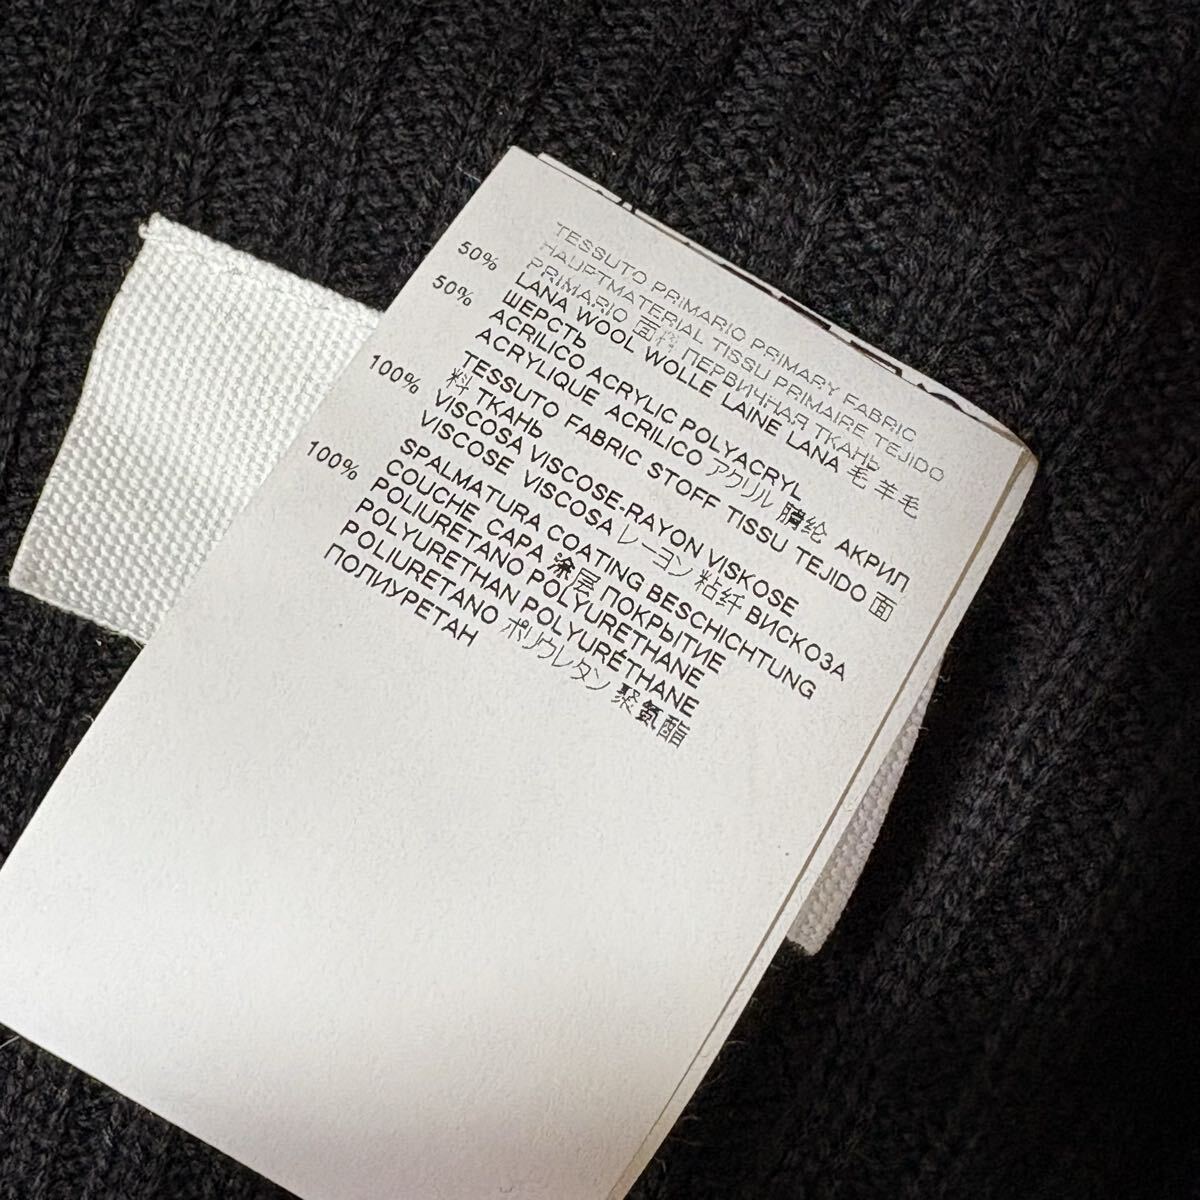 TESSUTO PRIMARIO PRIMARY FABRIC
HAUPTMATERIAL TISSU PRIMAIRE TEJIDO
PRIMARIO 面料 ПЕРВИЧНАЯ ТКАНЬ
50% LANA WOOL WOLLE LAINE LANA 毛 羊毛
ШЕРСТЬ
50% ACRILICO ACRYLIC POLYACRYL
ACRYLIQUE ACRILICO アクリル 腈纶 АКРИЛ
TESSUTO FABRIC STOFF TISSU TEJIDO 面
料 ТКАНЬ
100% VISCOSA VISCOSE-RAYON VISKOSE
VISCOSE VISCOSA レーヨン 粘纤 ВИСКОЗА
SPALMATURA COATING BESCHICHTUNG
COUCHE CAPA 涂层 ПОКРЫТИЕ
100% POLIURETANO POLYURETHANE
POLYURETHAN POLYURÉTHANE
POLIURETANO ポリウレタン 聚氨酯
ПОЛИУРЕТАН